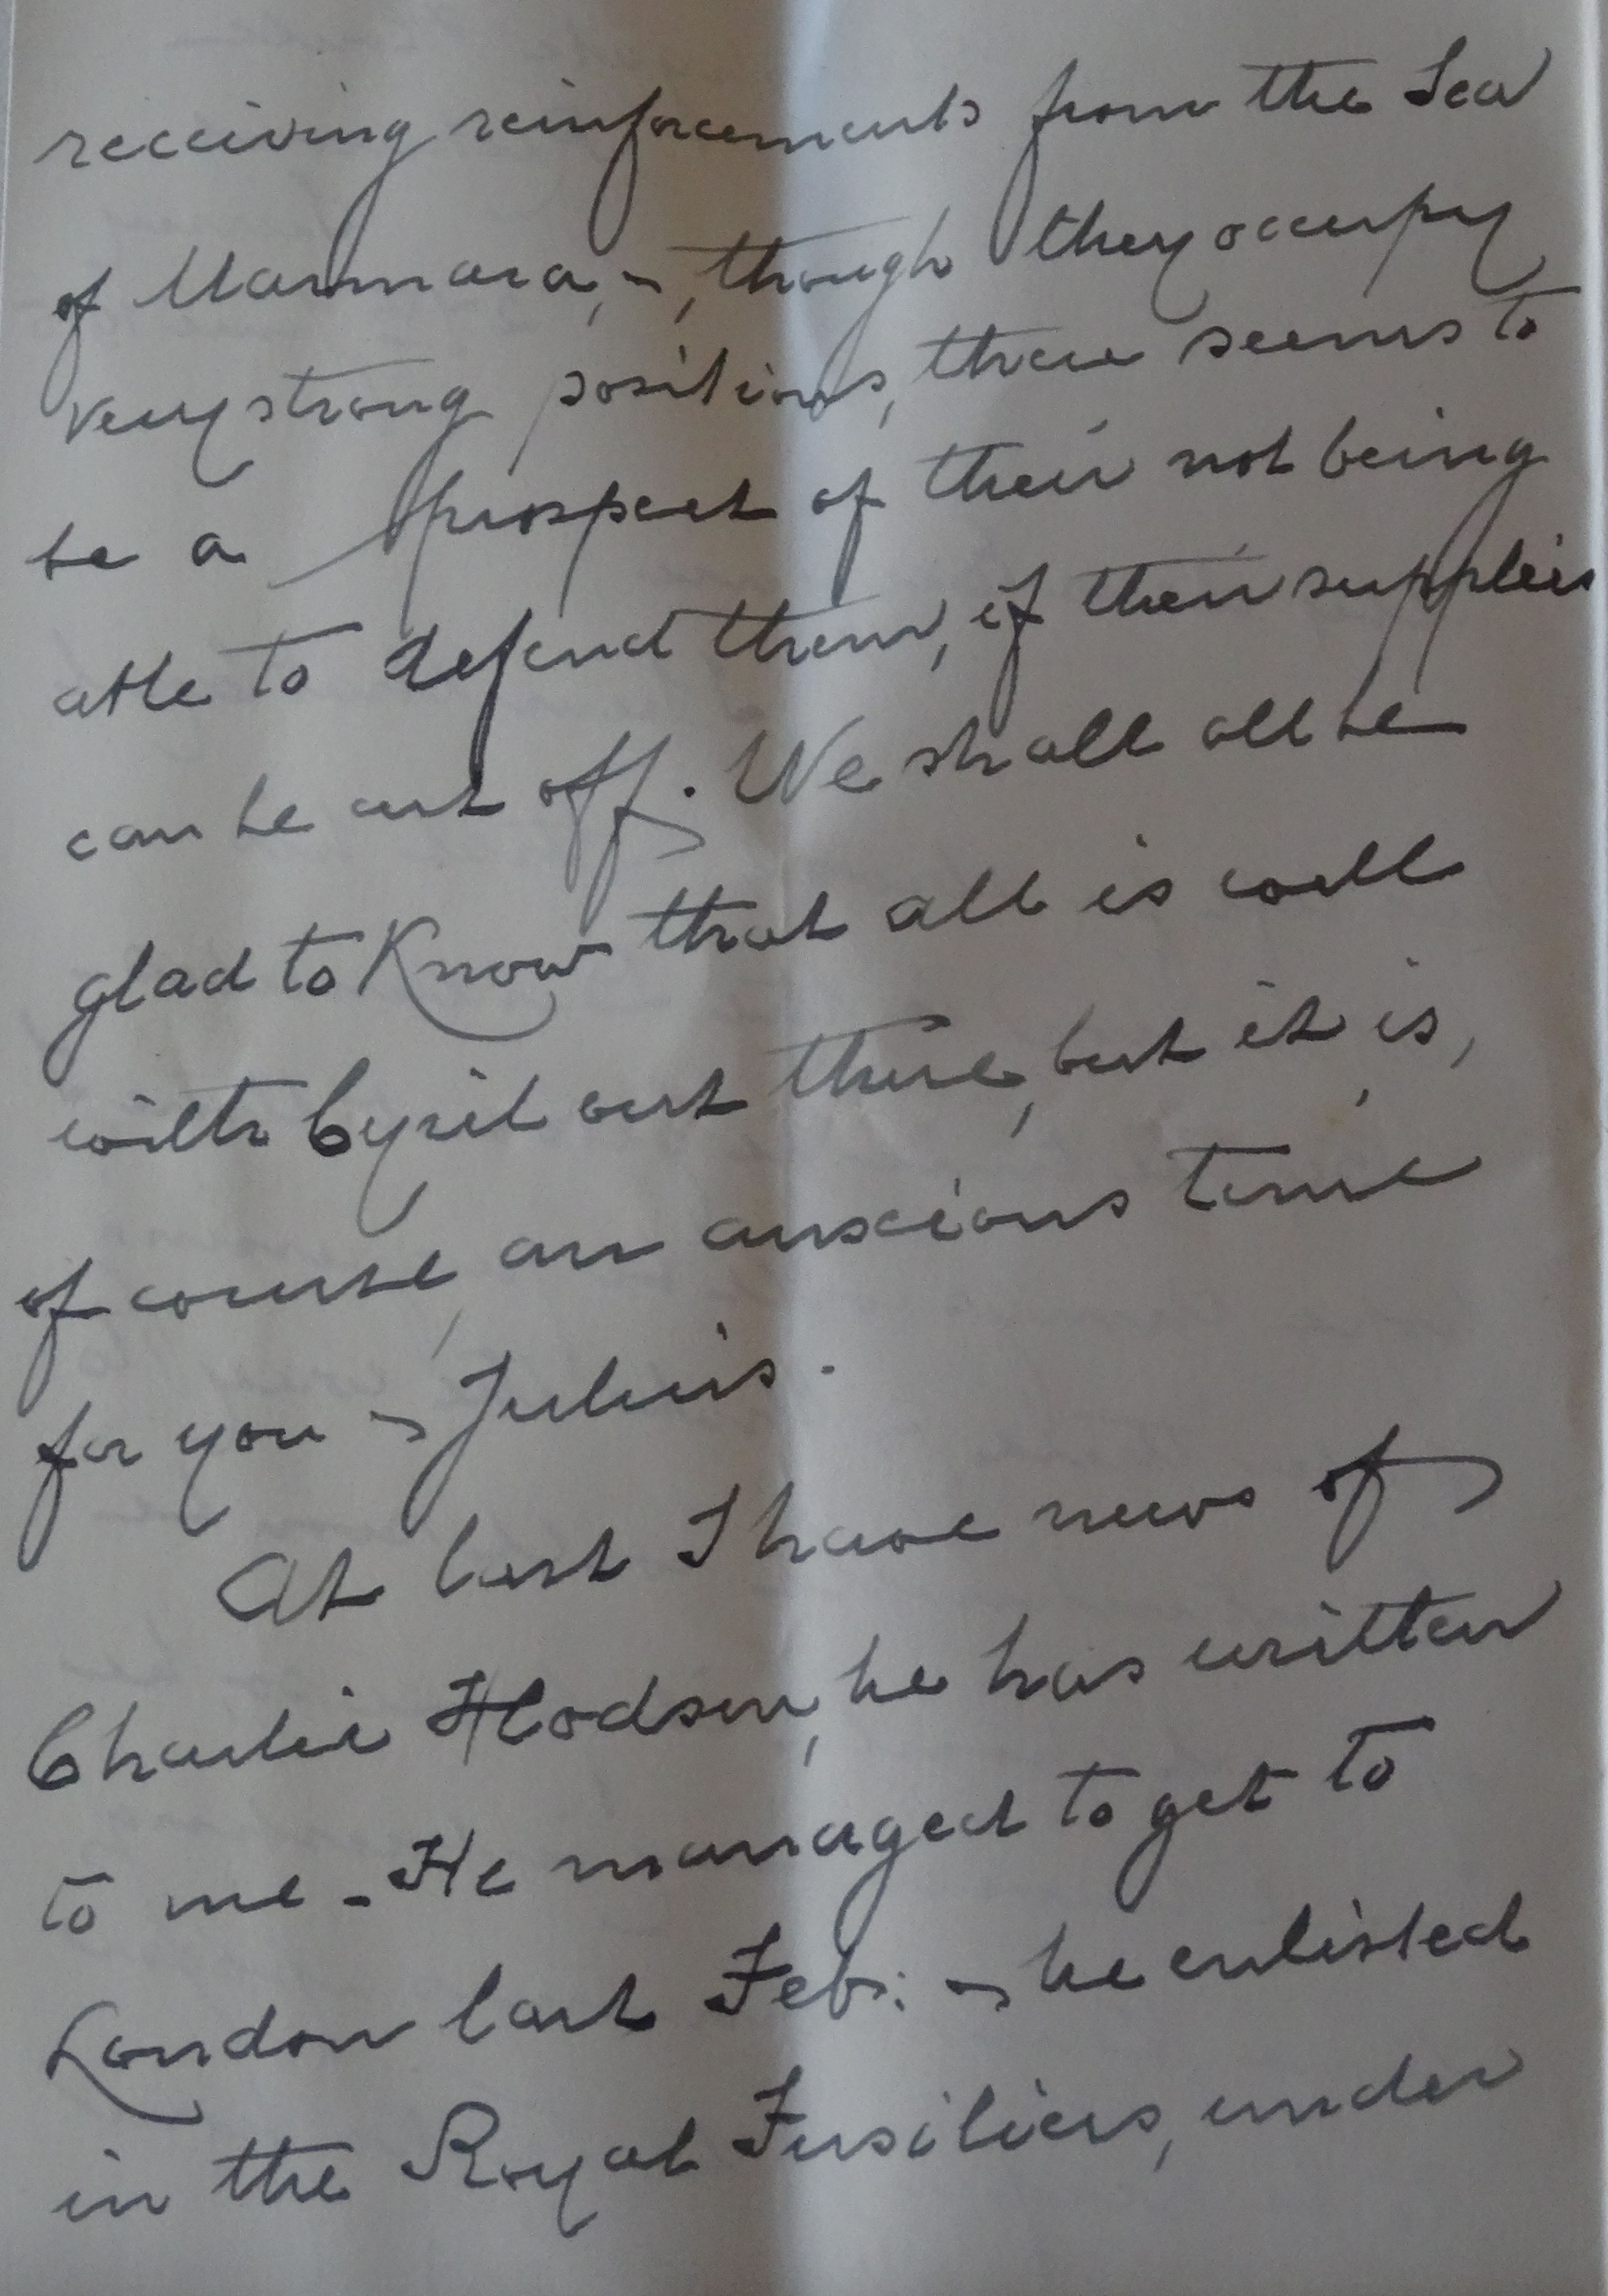 receiving reinforcements from the Sea
of Marmara, ~, though they occupy
very strong positions, there seems to
be a prospect of their not being
able to defend them, if their supplies
can be cut off. We shall all be
glad to Know that all is well
with Cyril out there, but it is,
of course, an anxious time
for you ~ Julius.
At last I have news of
Charlie Hodson, he has written
to me - He managed to get to
London last Feb: ~ he enlisted
in the Royal Fusiliers, under